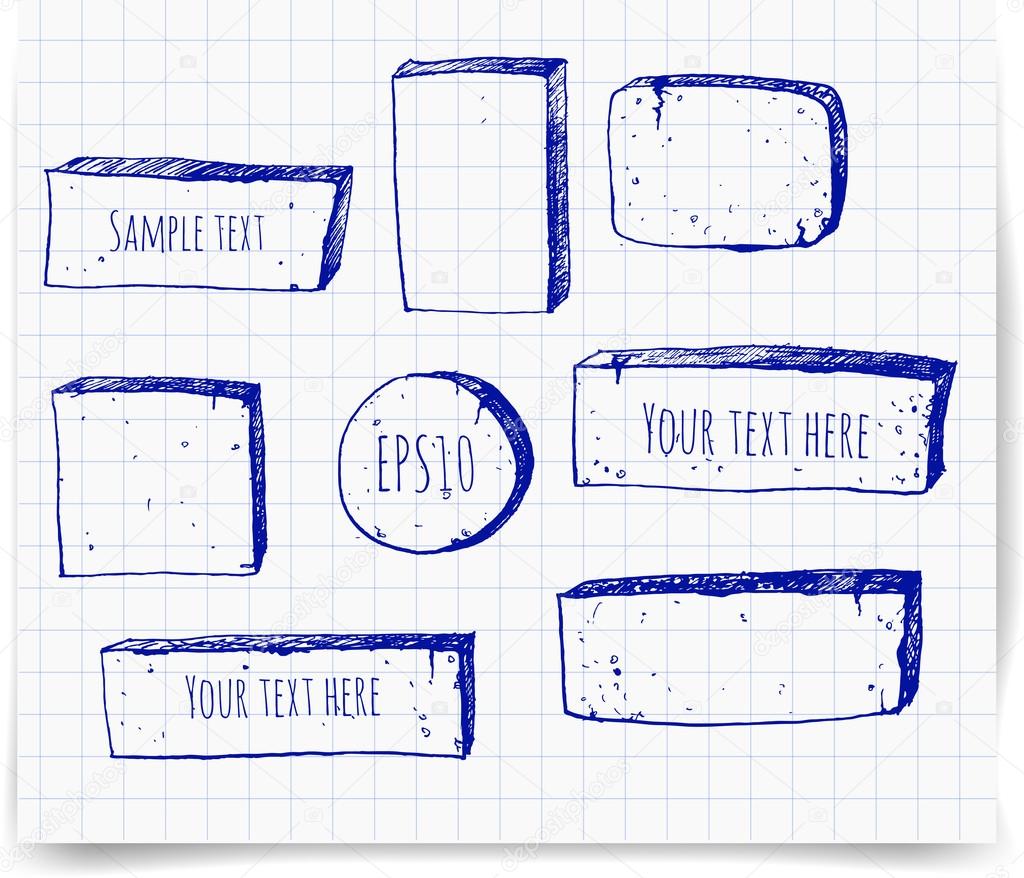 Sample text
Your text here
EPS10
Your text here
depositphotos